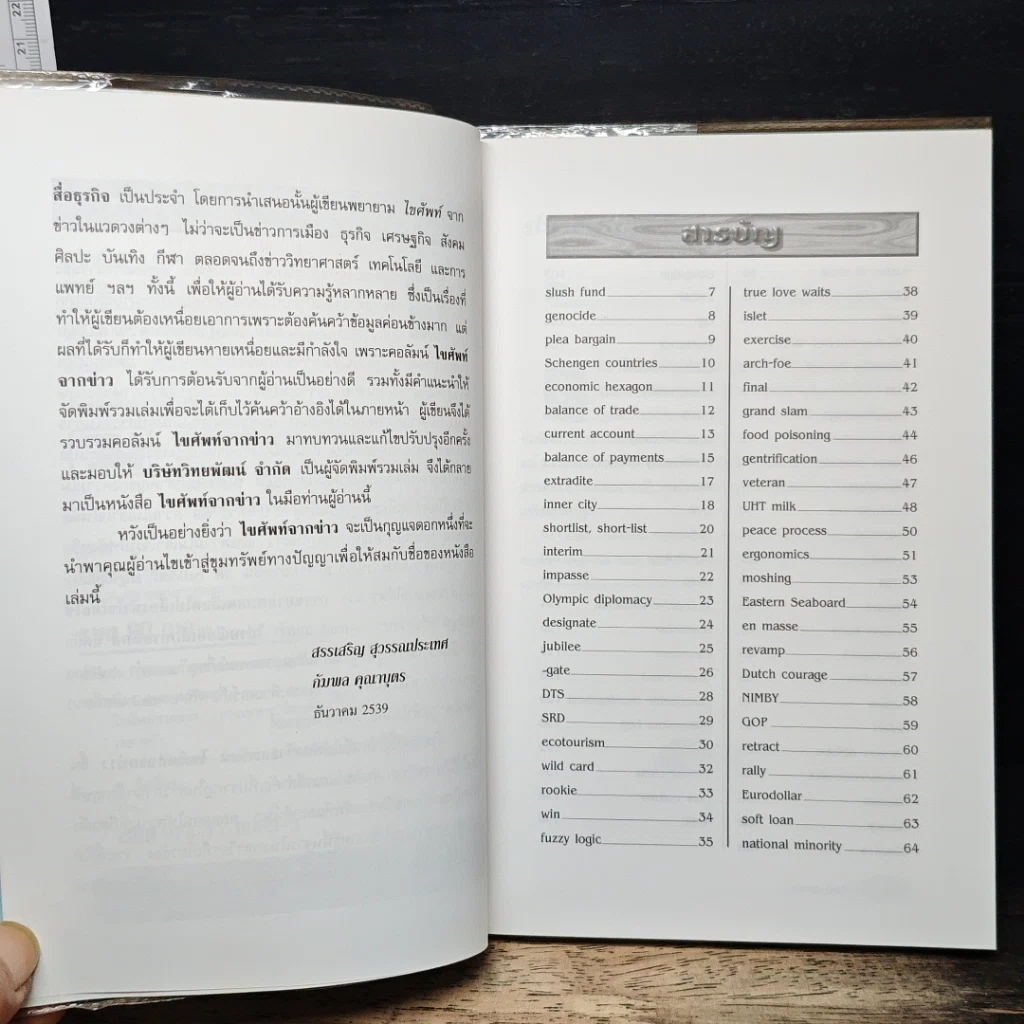 22
21
สื่อธุรกิจ เป็นประจำ โดยการนำเสนอนั้นผู้เขียนพยายาม ไขศัพท์ จาก
ข่าวในแวดวงต่างๆ ไม่ว่าจะเป็นข่าวการเมือง ธุรกิจ เศรษฐกิจ สังคม
ศิลปะ บันเทิง กีฬา ตลอดจนถึงข่าววิทยาศาสตร์ เทคโนโลยี และการ
แพทย์ ฯลฯ ทั้งนี้ เพื่อให้ผู้อ่านได้รับความรู้หลากหลาย ซึ่งเป็นเรื่องที่
ทำให้ผู้เขียนต้องเหนื่อยเอาการเพราะต้องค้นคว้าข้อมูลค่อนข้างมาก แต่
ผลที่ได้รับก็ทำให้ผู้เขียนหายเหนื่อยและมีกำลังใจ เพราะคอลัมน์ ไขศัพท์
จากข่าว ได้รับการต้อนรับจากผู้อ่านเป็นอย่างดี รวมทั้งมีคำแนะนำให้
จัดพิมพ์รวมเล่มเพื่อจะได้เก็บไว้ค้นคว้าอ้างอิงได้ในภายหน้า ผู้เขียนจึงได้
รวบรวมคอลัมน์ ไขศัพท์จากข่าว มาทบทวนและแก้ไขปรับปรุงอีกครั้ง
และมอบให้ บริษัทวิทยพัฒน์ จำกัด เป็นผู้จัดพิมพ์รวมเล่ม จึงได้กลาย
มาเป็นหนังสือ ไขศัพท์จากข่าว ในมือท่านผู้อ่านนี้
หวังเป็นอย่างยิ่งว่า ไขศัพท์จากข่าว จะเป็นกุญแจดอกหนึ่งที่จะ
นำพาคุณผู้อ่านไขเข้าสู่ขุมทรัพย์ทางปัญญาเพื่อให้สมกับชื่อของหนังสือ
เล่มนี้
สรรเสริญ สุวรรณประเทศ
กัมพล คุณาบุตร
ธันวาคม 2539
สารบัญ
slush fund 7
genocide 8
plea bargain 9
Schengen countries 10
economic hexagon 11
balance of trade 12
current account 13
balance of payments 15
extradite 17
inner city 18
shortlist, short-list 20
interim 21
impasse 22
Olympic diplomacy 23
designate 24
jubilee 25
-gate 26
DTS 28
SRD 29
ecotourism 30
wild card 32
rookie 33
win 34
fuzzy logic 35
true love waits 38
islet 39
exercise 40
arch-foe 41
final 42
grand slam 43
food poisoning 44
gentrification 46
veteran 47
UHT milk 48
peace process 50
ergonomics 51
moshing 53
Eastern Seaboard 54
en masse 55
revamp 56
Dutch courage 57
NIMBY 58
GOP 59
retract 60
rally 61
Eurodollar 62
soft loan 63
national minority 64